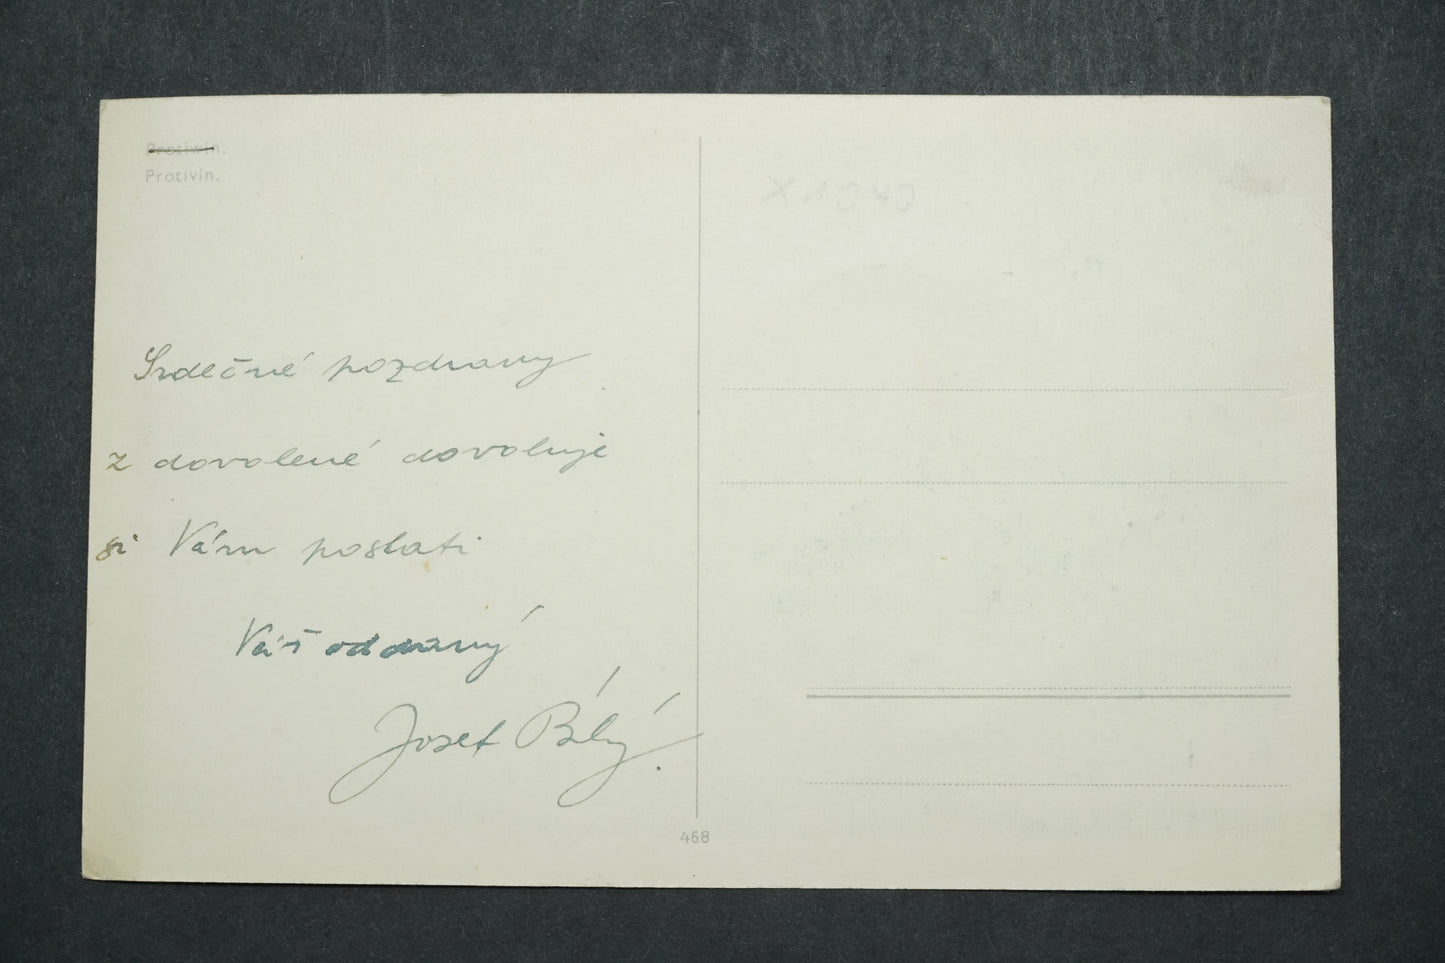 Protiwin.
Protivín.
Srdečné pozdravy
z dovolené dovoluje
si Vám poslati
Váš oddaný
Josef Bílý.
468